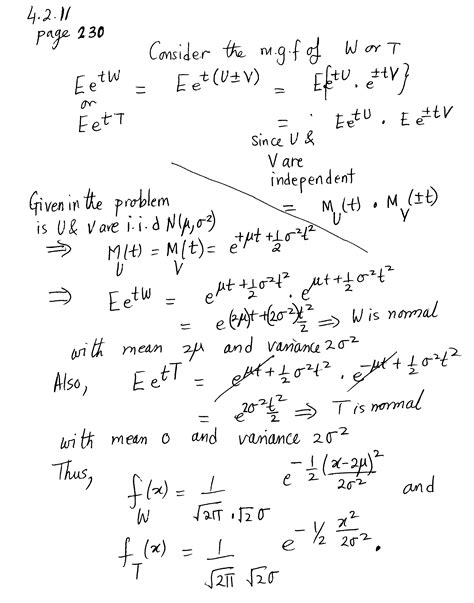 4.2.11
page 230
Consider the m.g.f of W or T
E e^{tW} = E e^{t(U±V)} = E{e^{tU} . e^{±tV}}
or
E e^{tT} = E e^{tU} . E e^{±tV}
since U &
V are
independent
= M_U(t) . M_V(±t)
Given in the problem
is U & V are i.i.d N(μ,σ²)
⇒ M_U(t) = M_V(t) = e^{+μt + ½σ²t²}
⇒ E e^{tW} = e^{μt+½σ²t²} . e^{μt+½σ²t²}
= e^{(2μ)t+(2σ²)t²/2} ⇒ W is normal
with mean 2μ and variance 2σ²
Also, E e^{tT} = e^{μt+½σ²t²} . e^{-μt+½σ²t²}
= e^{2σ²t²/2} ⇒ T is normal
with mean 0 and variance 2σ²
Thus,
f_W(x) = 1/(√2π . √2 σ) e^{-½ (x-2μ)²/2σ²} and
f_T(x) = 1/(√2π √2σ) e^{-1/2 x²/2σ²} .